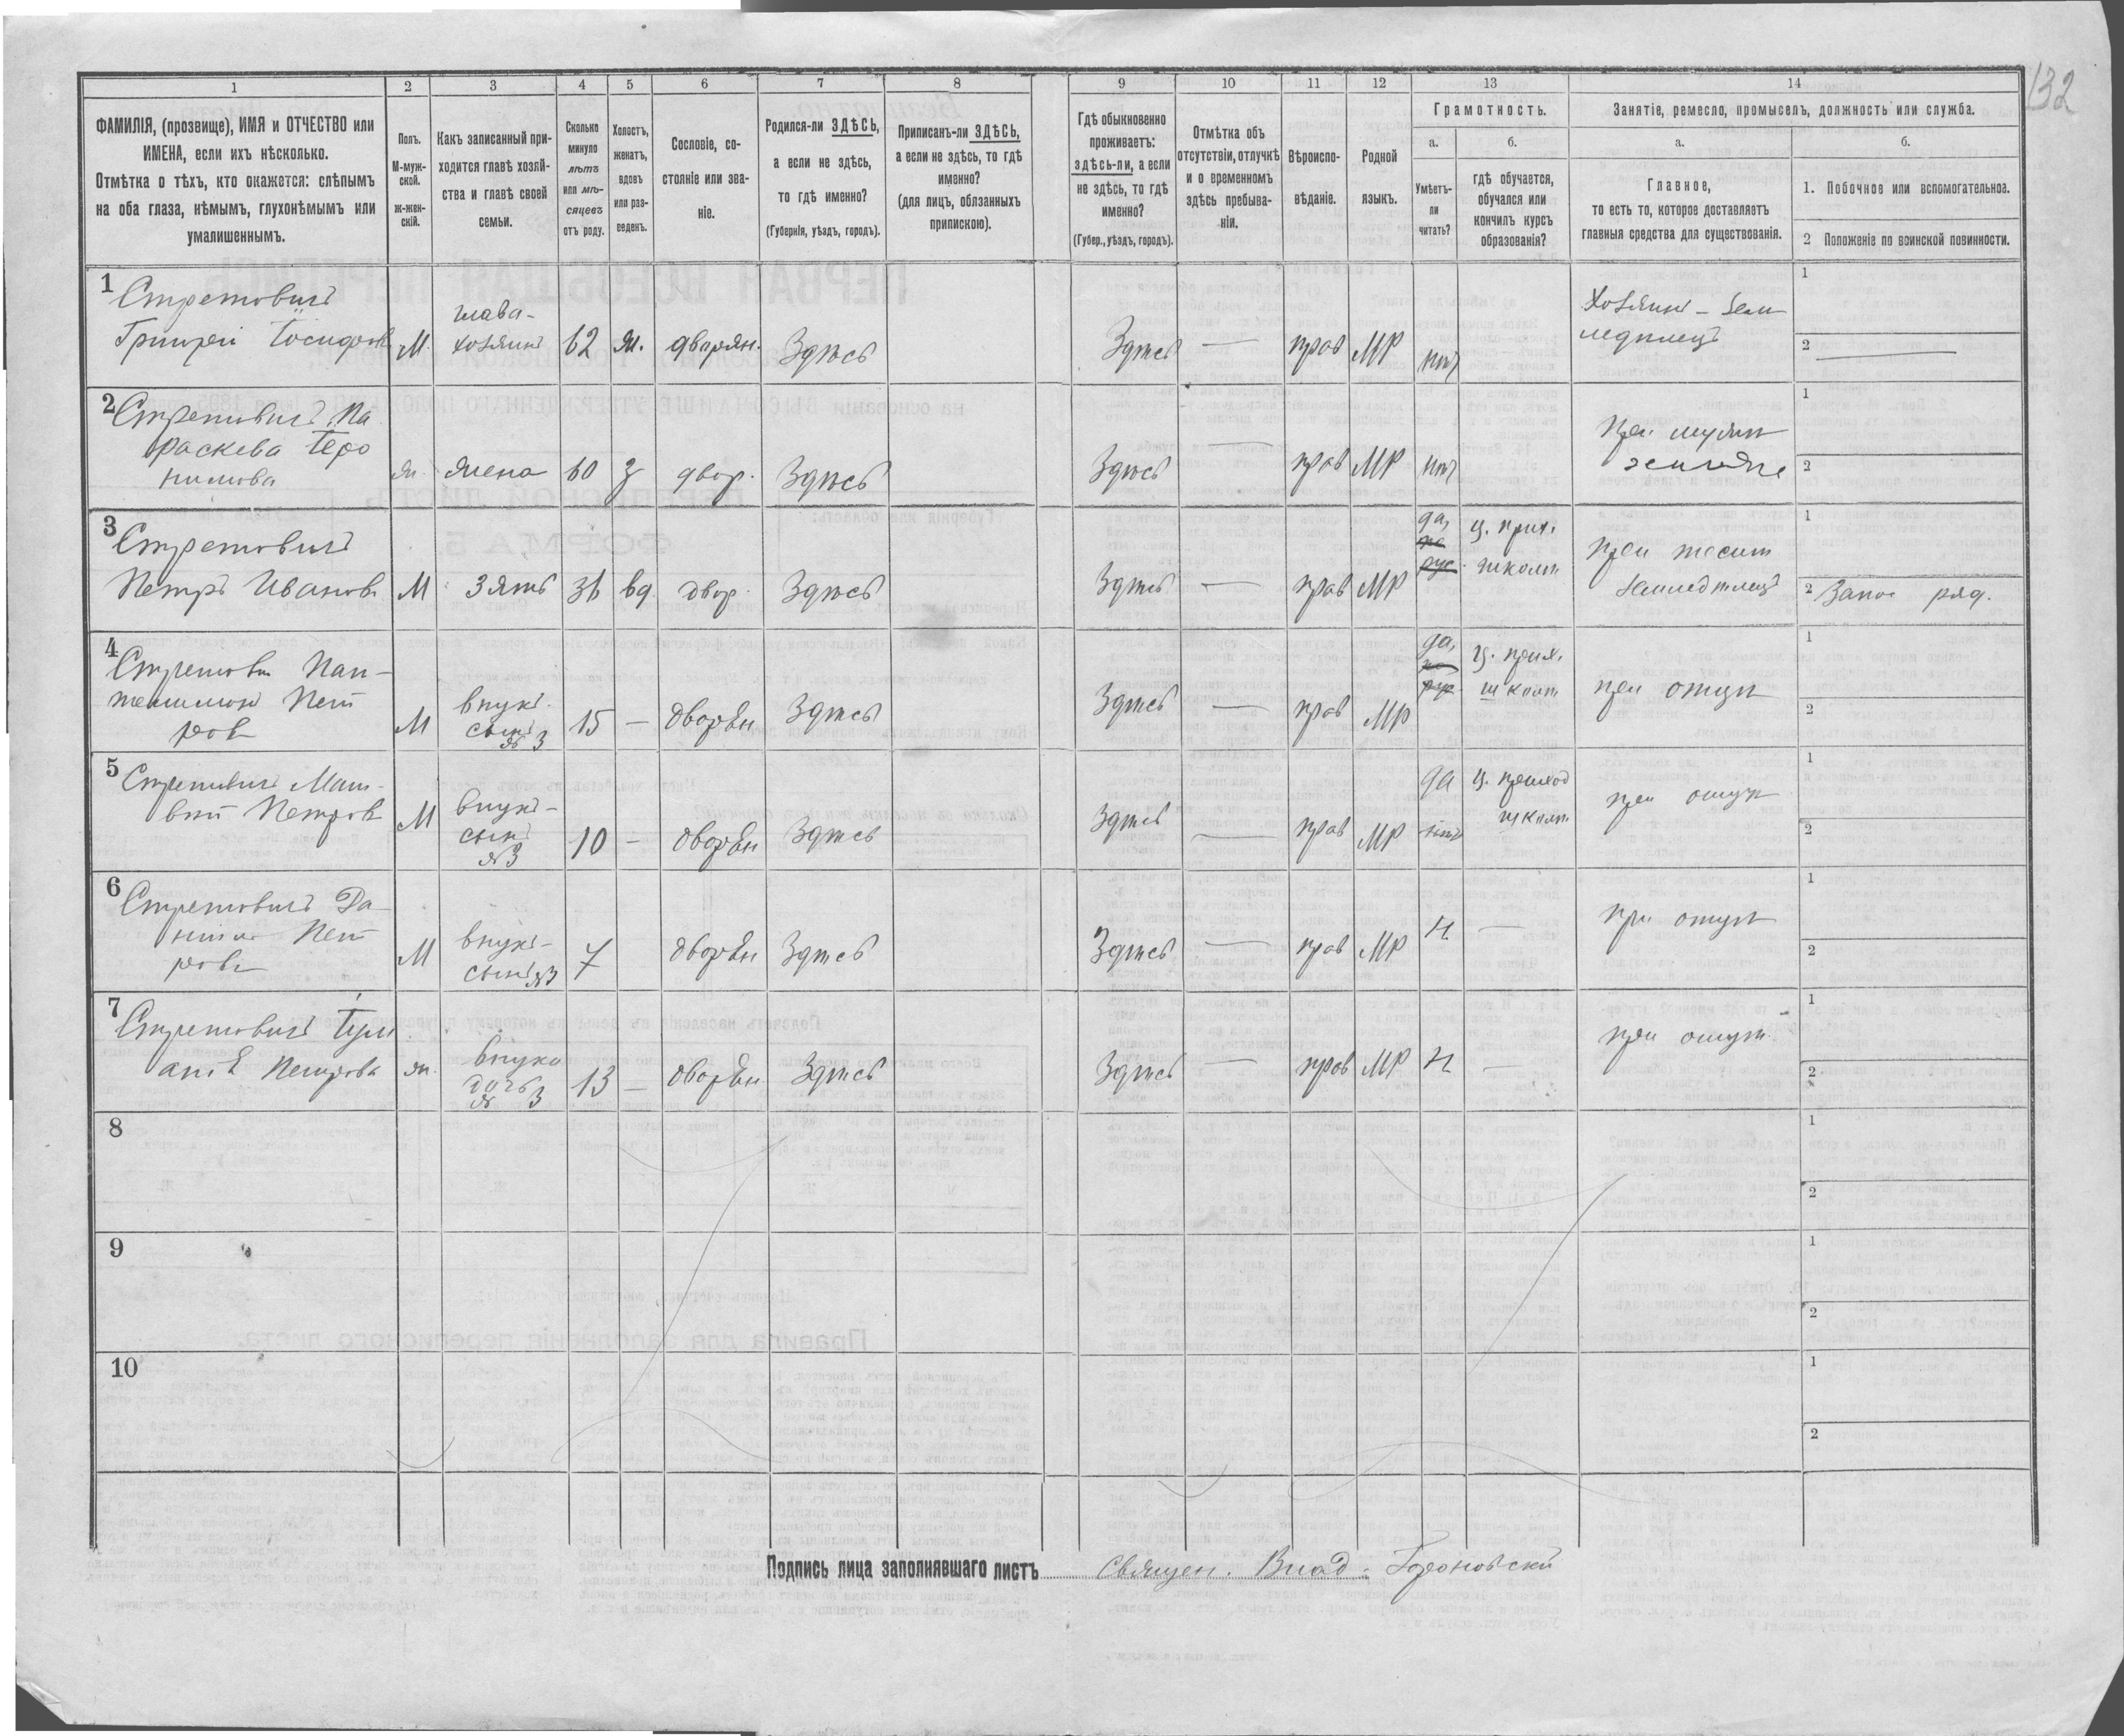 132
1 2 3 4 5 6 7 8 9 10 11 12 13 14
ФАМИЛІЯ, (прозвище), ИМЯ и ОТЧЕСТВО или
ИМЕНА, если ихъ нѣсколько.
Отмѣтка о тѣхъ, кто окажется: слѣпымъ
на оба глаза, нѣмымъ, глухонѣмымъ или
умалишеннымъ.
Полъ.
М-муж-
ской.
ж-жен-
скій.
Какъ записанный при-
ходится главѣ хозяй-
ства и главѣ своей
семьи.
Сколько
минуло
лѣтъ
или мѣ-
сяцевъ
отъ роду.
Холостъ,
женатъ,
вдовъ
или раз-
веденъ.
Сословіе, со-
стояніе или зва-
ніе.
Родился-ли ЗДѢСЬ,
а если не здѣсь,
то гдѣ именно?
(Губернія, уѣздъ, городъ).
Приписанъ-ли ЗДѢСЬ,
а если не здѣсь, то гдѣ
именно?
(для лицъ, обязанныхъ
припискою).
Гдѣ обыкновенно
проживаетъ:
здѣсь-ли, а если
не здѣсь, то гдѣ
именно?
(Губер., уѣздъ, городъ).
Отмѣтка объ
отсутствіи, отлучкѣ
и о временномъ
здѣсь пребыва-
ніи.
Вѣроиспо-
вѣданіе.
Родной
языкъ.
Грамотность.
а.
Умѣетъ-
ли
читать?
б.
гдѣ обучается,
обучался или
кончилъ курсъ
образованія?
Занятіе, ремесло, промыселъ, должность или служба.
а.
Главное,
то есть то, которое доставляетъ
главныя средства для существованія.
б.
1. Побочное или вспомогательное.
2 Положеніе по воинской повинности.
1
Стретовичъ
Григорій Іосифов
М.
глава-
хозяинъ
62
ж.
дворян.
Здѣсь
Здѣсь
—
прав
МР
нѣт
Хозяинъ - Зем
ледѣлецъ
1
2
2
Стретовичъ Па
раскева Іеро
нимова
ж.
жена
60
з
двор.
Здѣсь
Здѣсь
—
прав
МР
нѣт
При мужѣ
1
2
3
Стретовичъ
Петръ Иванов
М
Зять
36
вд.
двор.
Здѣсь
Здѣсь
—
прав
МР
да,
рус.
ц. прих.
школѣ
при тестѣ
земледѣлецъ
1
2 Запас ряд.
4
Стретович Пан-
телимон Пет
ров
М
внукъ-
сынъ
№ 3
15
—
дворян
Здѣсь
Здѣсь
—
прав
МР
да,
ц. прих.
школѣ
при отцѣ
1
2
5
Стретович Мат-
вѣй Петров
М
внукъ-
сынъ
№3
10
—
дворян
Здѣсь
Здѣсь
—
прав
МР
да
ц. приход
школѣ
при отцѣ
1
2
6
Стретовичъ Да
ніил Пет
ров
М
внукъ-
сынъ №3
7
дворян
Здѣсь
Здѣсь
—
прав
МР
н.
—
при отцѣ
1
2
7
Стретовичъ Іули
анія Петрова
ж.
внука
дочь
№ 3
13
—
дворян
Здѣсь
Здѣсь
—
прав
МР
н.
—
при отцѣ.
1
2
8
1
2
9
1
2
10
1
2
Подпись лица заполнявшаго листъ Священ. Влад.